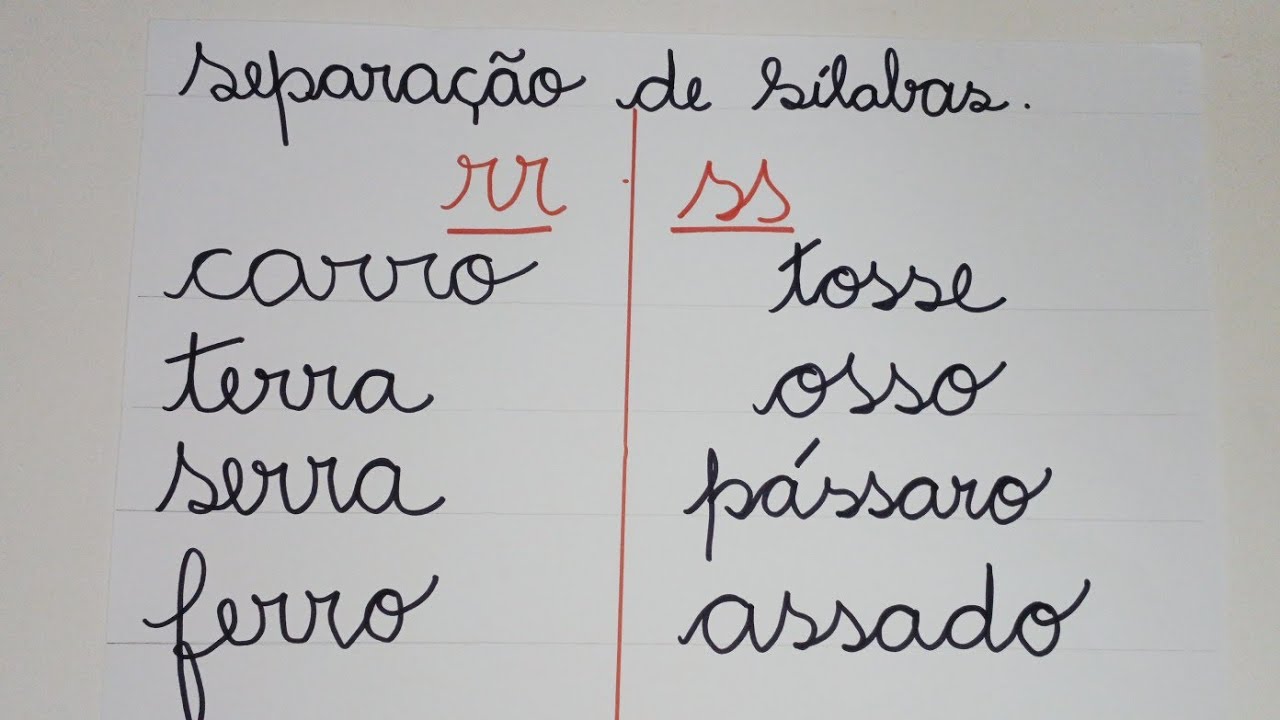 separação de sílabas.
rr ss
carro tosse
terra osso
serra pássaro
ferro assado